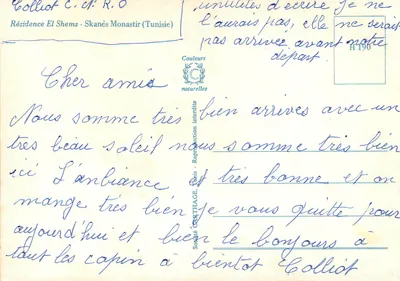 Colliot C. N. R. O
Résidence El Shems - Skanès Monastir (Tunisie)
inutiles d'écrire je ne
l'aurais pas, elle ne serait
pas arrivée avant notre
départ.
H 190
Couleurs
C
naturelles
Cher amis
Nous somme très bien arrives avec un
tres beau soleil nous somme très bien
ici L'anbiance et très bonne et on
mange très bien je vous quitte pour
aujourd'hui et bien le bonjours à
tout les copin à bientot Colliot
Reproduction interdite